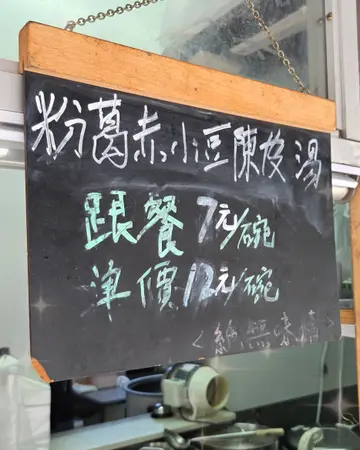 粉葛赤小豆陳皮湯
跟餐7元/碗
津價12元/碗
<絕無味精>